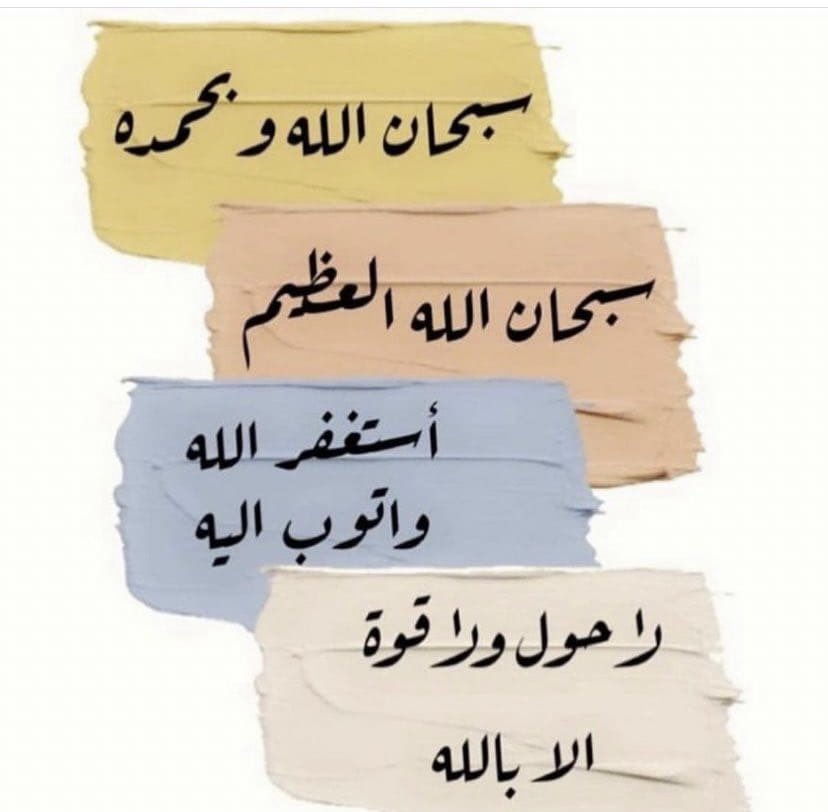 سبحان الله و بحمده
سبحان الله العظيم
أستغفر الله
واتوب اليه
لا حول ولا قوة
الا بالله